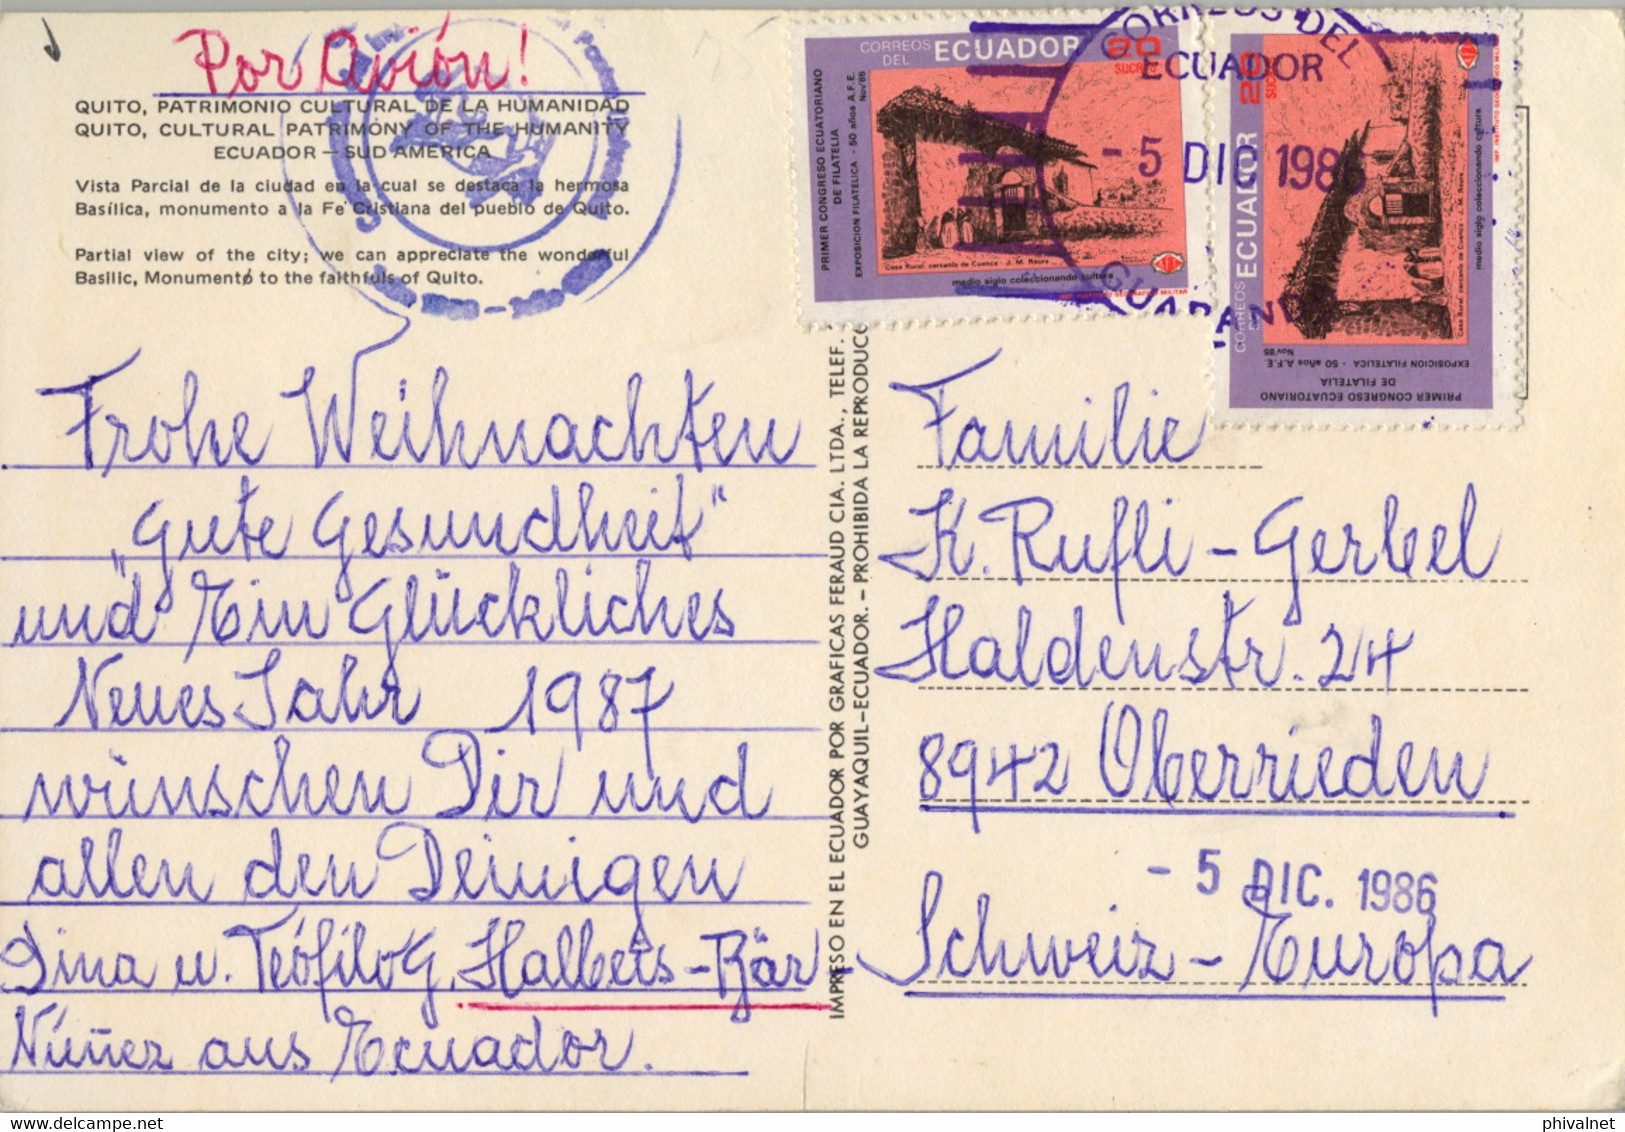 Por Avión!
QUITO, PATRIMONIO CULTURAL DE LA HUMANIDAD
QUITO, CULTURAL PATRIMONY OF THE HUMANITY
ECUADOR — SUD AMERICA
Vista Parcial de la ciudad en la cual se destaca la hermosa
Basílica, monumento a la Fe Cristiana del pueblo de Quito.
Partial view of the city; we can appreciate the wonderful
Basilic, Monumento to the faithfuls of Quito.
Frohe Weihnachten
„Gute Gesundheit"
und Ein Glückliches
Neues Jahr 1987
wünschen Dir und
allen den Deinigen
Dina u. Teófilo G. Halbeis-Bär
Núñez aus Ecuador.
IMPRESO EN EL ECUADOR POR GRAFICAS FERAUD CIA. LTDA., TELEF.
GUAYAQUIL-ECUADOR. — PROHIBIDA LA REPRODUCC
CORREOS DEL ECUADOR 20 SUCRES
PRIMER CONGRESO ECUATORIANO
DE FILATELIA
EXPOSICION FILATELICA - 50 años A.F.E.
Nov'85
Casa Rural, cercanía de Cuenca - J. M. Roura
medio siglo coleccionando cultura
IMP. INSTITUTO GEOGRAFICO MILITAR
CORREOS DEL ECUADOR 20 SUCRES
PRIMER CONGRESO ECUATORIANO
DE FILATELIA
EXPOSICION FILATELICA - 50 años A.F.E.
Nov'85
Casa Rural, cercanía de Cuenca - J. M. Roura
medio siglo coleccionando cultura
CORREOS DEL
ECUADOR
- 5 DIC 1986
GUARANDA
Familie
K. Rufli - Gerbel
Haldenstr. 24
8942 Oberrieden
- 5 DIC. 1986
Schweiz - Europa
phivalnet